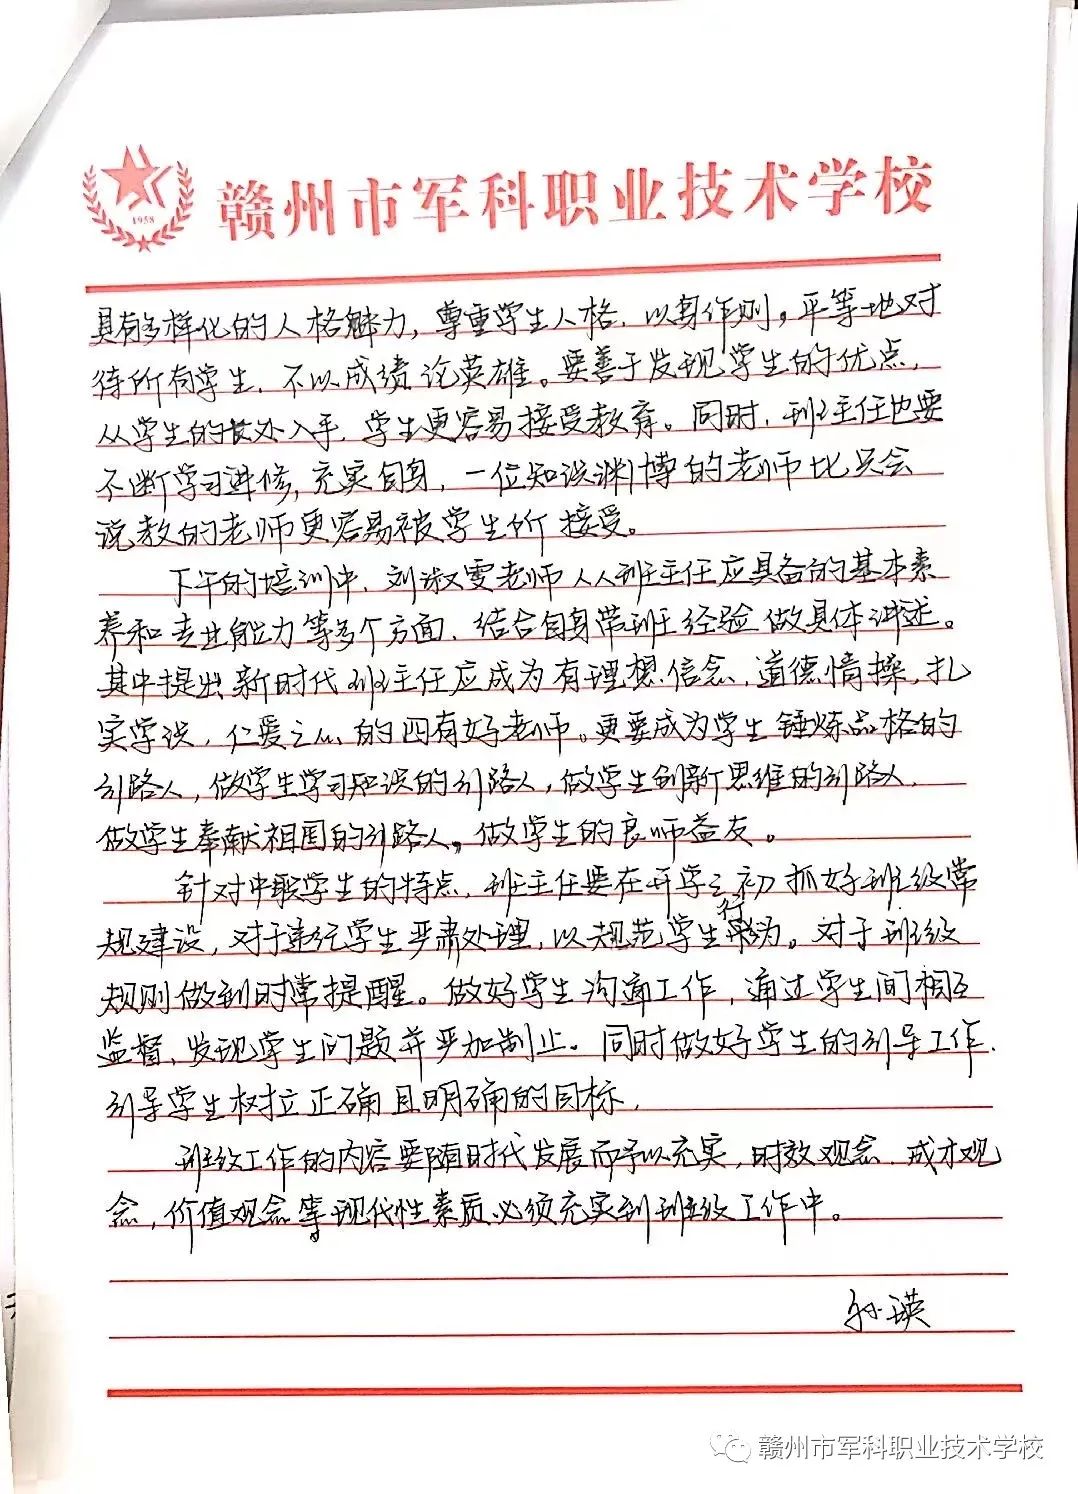 1958
赣州市军科职业技术学校
具有多样化的人格魅力，尊重学生人格，以身作则。平等地对
待所有学生，不以成绩论英雄。要善于发现学生的优点，
从学生的长处入手，学生更容易接受教育。同时，班主任也要
不断学习进修，充实自身，一位知识渊博的老师比只会
说教的老师更容易被学生所接受。
下午的培训中，刘淑雯老师从班主任应具备的基本素
养和专业能力等多个方面，结合自身带班经验做具体讲述。
其中提出新时代班主任应成为有理想信念，道德情操，扎
实学识，仁爱之心的四有好老师。更要成为学生锤炼品格的
引路人，做学生学习知识的引路人，做学生创新思维的引路人，
做学生奉献祖国的引路人。做学生的良师益友。
针对中职学生的特点，班主任要在开学之初抓好班级常
规建设，对于违纪学生严肃处理，以规范学生行为。对于班级
规则做到时常提醒。做好学生沟通工作，通过学生间相互
监督，发现学生问题并严加制止。同时做好学生的引导工作，
引导学生树立正确且明确的目标，
班级工作的内容要随时代发展而予以充实，时效观念，成才观
念，价值观念等现代性素质必须充实到班级工作中。
孙瑛
赣州市军科职业技术学校